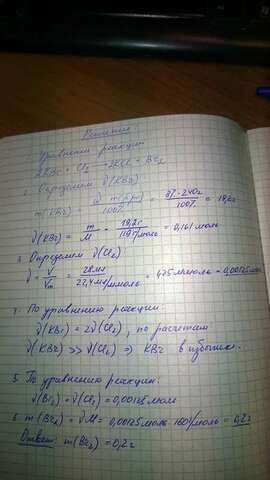 Решение
Уравнение реакции
2KBr + Cl₂ → 2KCl + Br₂
2. Определяем ν(KBr)
m(KBr) = ω · m(р-р) / 100% = 8% · 240г / 100% = 19,2г
ν(KBr) = m / M = 19,2г / 119г/моль = 0,161 моль
3. Определяем ν(Cl₂)
ν = V / Vm = 28мл / 22,4мл/ммоль = 1,25 ммоль = 0,00125 моль
4. По уравнению реакции:
ν(KBr) = 2ν(Cl₂), по расчетам
ν(KBr) >> ν(Cl₂) ⇒ KBr в избытке.
5. По уравнению реакции:
ν(Br₂) = ν(Cl₂) = 0,00125 моль
6. m(Br₂) = ν·M = 0,00125 моль · 160г/моль = 0,2г
Ответ: m(Br₂) = 0,2г